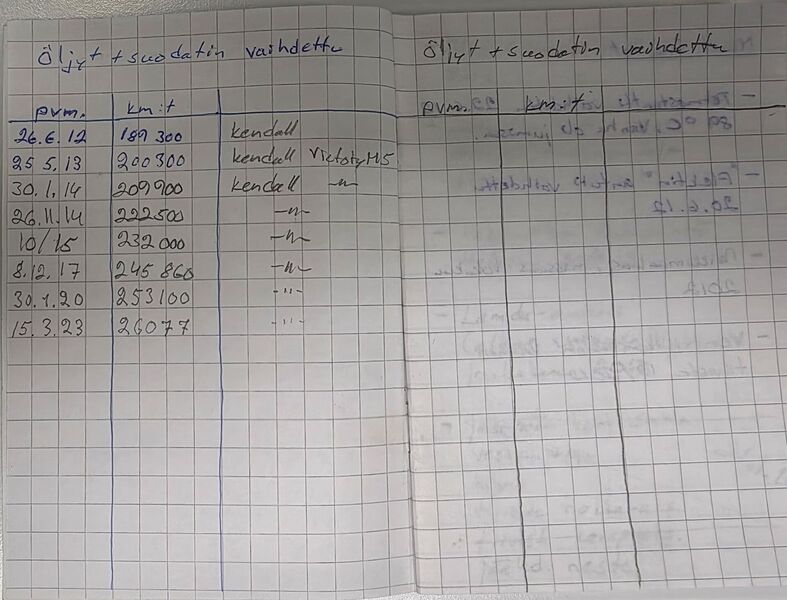 Öljyt + suodatin vaihdettu
pvm. km:t
26.6.12 189 300 kendall
25 5.13 200 300 kendall
30.1.14 209900 kendall -"-
26.11.14 222500 -"-
10/15 232 000 -"-
8.12.17 245 860 -"-
30.1.20 253100 -"-
15.3.23 26077 -"-
Öljyt + suodatin vaihdettu
pvm. km:t